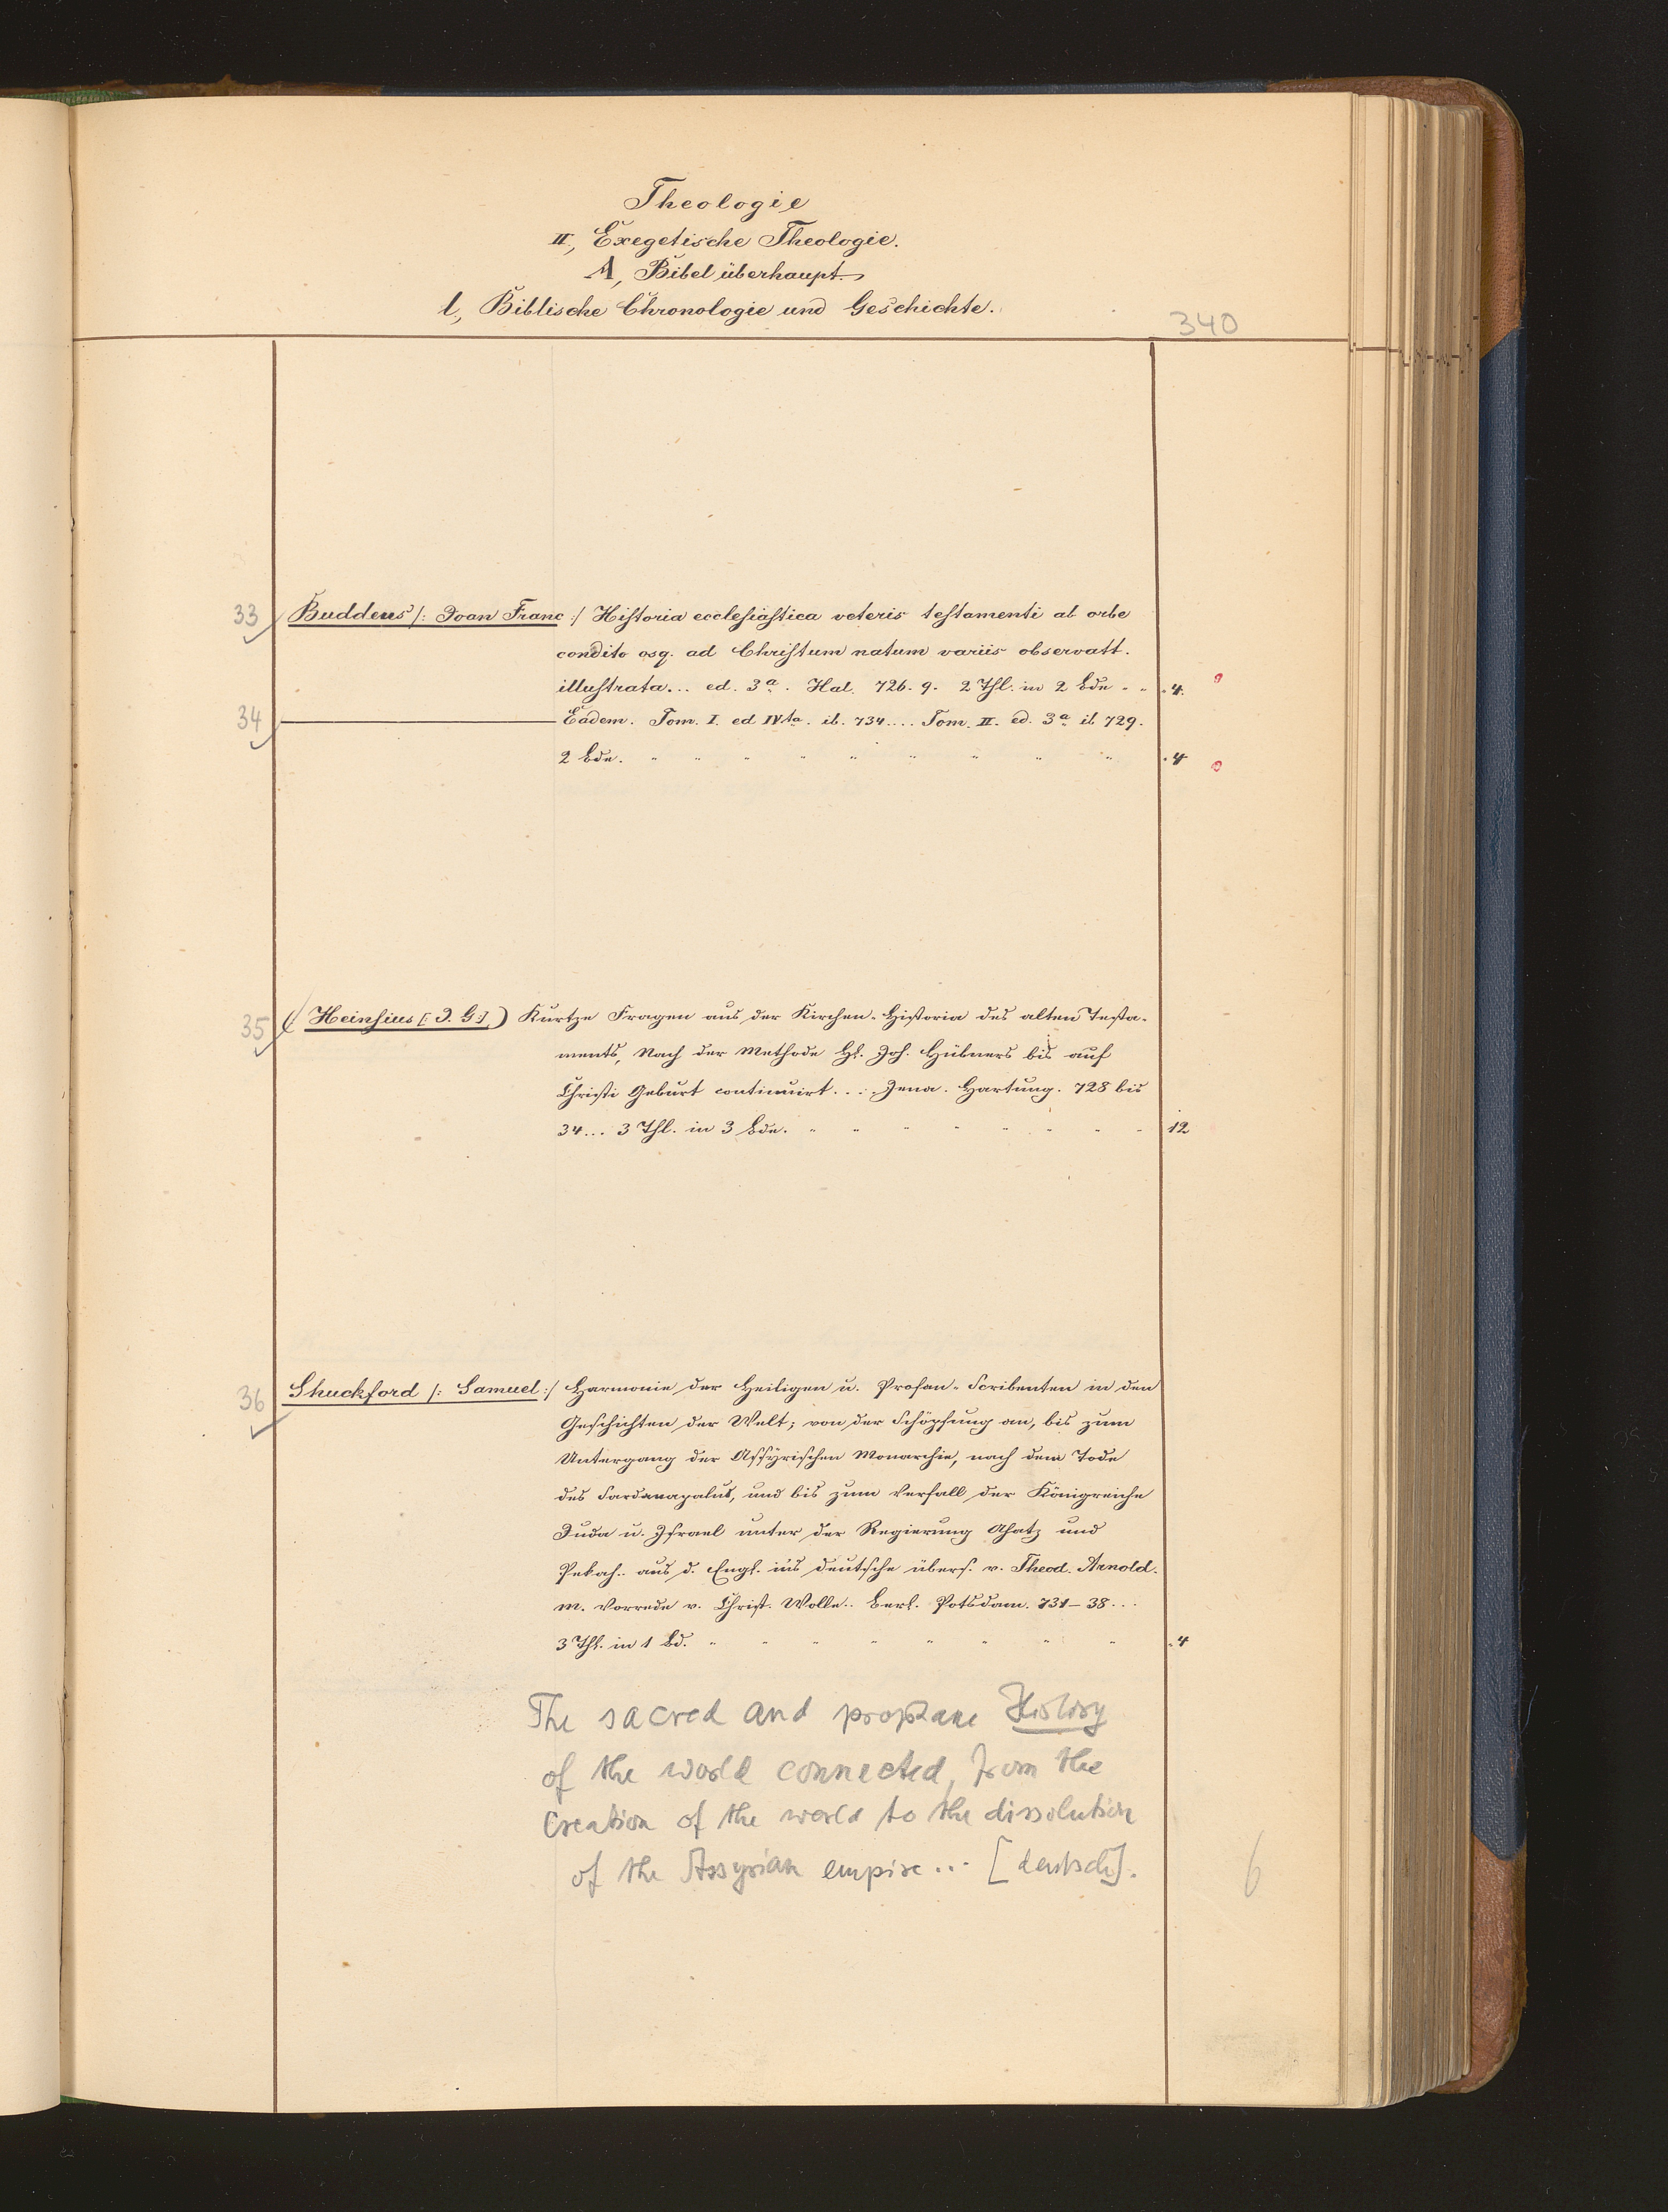 Theologie
II, Exegetische Theologie.
A, Bibel überhaupt.
l, Biblische Chronologie und Geschichte.
340
33 Buddeus /: Joan Franc :/ Historia ecclesiastica veteris testamenti ab orbe
condito osq. ad Christum natum variis observatt.
illustrata... ed. 3a. Hal. 726. 9. 2 Thl. in 2 Bde - - . 4.
34 Eadem. Tom. I. ed IVta. ib. 734.... Tom. II. ed. 3a ib 729.
2 Bde. . 4
35 ( Heinsius [: J. G :] ) Kurtze Fragen aus der Kirchen-Historia des alten Testa-
ments, Nach der Methode H. Joh. Hübners bis auf
Christi Geburt continuirt... Jena. Hartung. 728 bis
34... 3 Thl. in 3 Bde. 12
36 Shuckford /: Samuel :/ Harmonie der Heiligen u. Profan-Scribenten in den
Geschichten der Welt; von der Schöpfung an, bis zum
Untergang der Assyrischen Monarchie, nach dem Tode
des Sardanapalus, und bis zum Verfall der Königreiche
Juda u. Israel unter der Regierung Ahatz und
Pekah.. aus d. Engl. ins deutsche übers. v. Theod. Arnold.
m. Vorrede v. Christ. Wolle.. Berl. Potsdam. 731-38...
3 Thl. in 1 Bd. . 4
The sacred and prophane History
of the world connected, from the
Creation of the world to the dissolution
of the Assyrian empire... [deutsch].
6